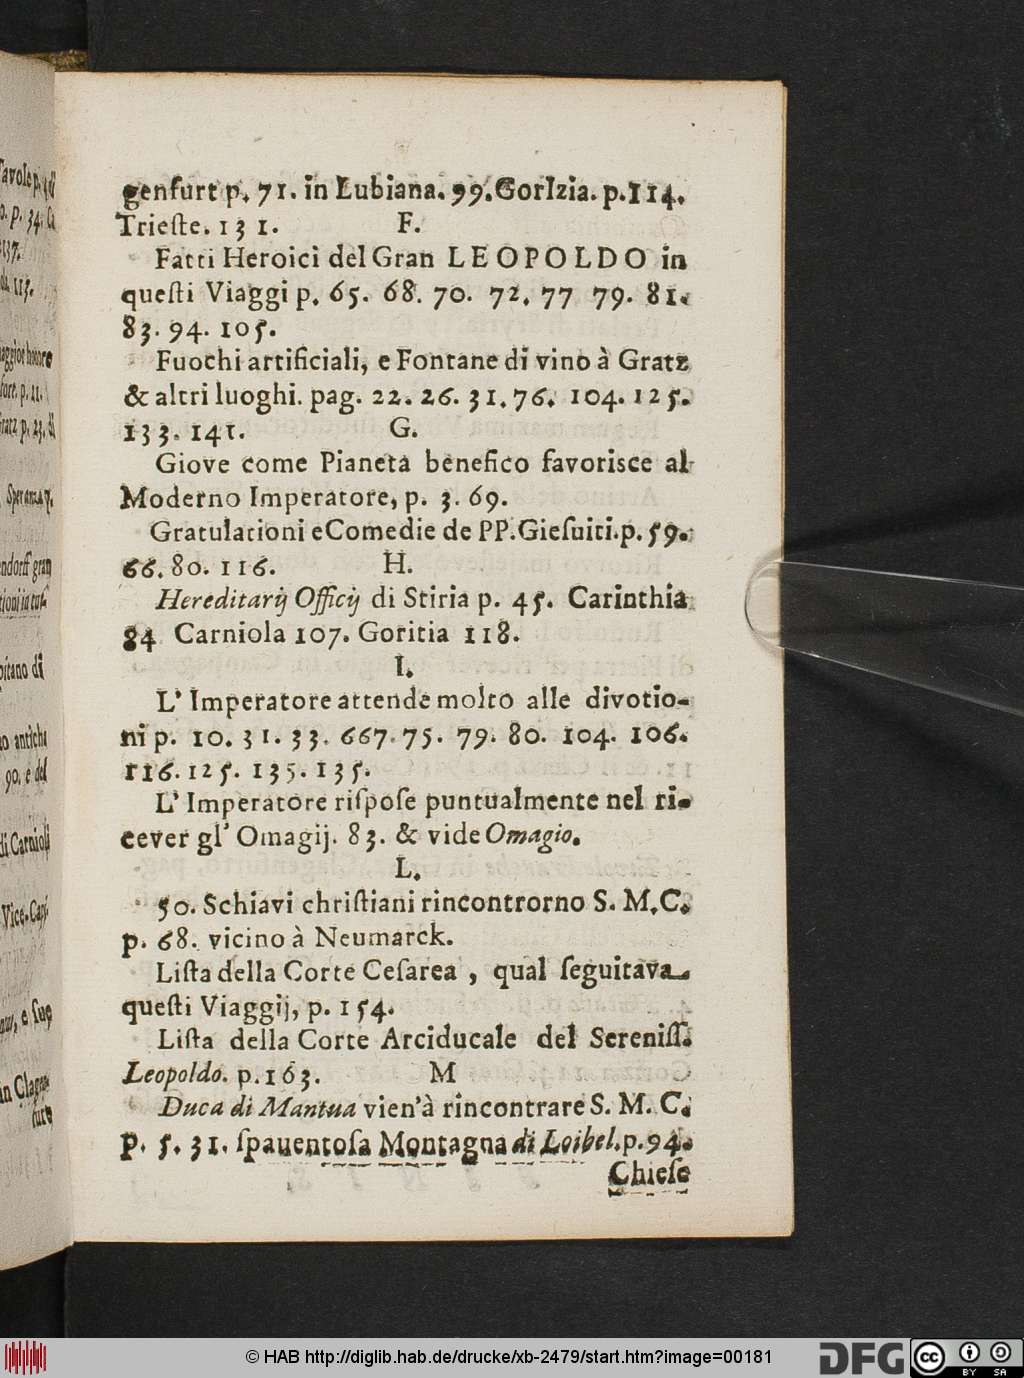 Tavole p. 4 di
o. p. 34. Ca
137.
113.
aggior honore
fort. p. 21.
Gratz p. 23. di
Speranza p.
ndorff gran
pitano di
no antichi
90. e del
di Carnioli
Vice-Capi-
, e suo
in Clagen-
furt
genfurt p. 71. in Lubiana. 99. GorIzia. p. 114.
Trieſte. 131. F.
Fatti Heroici del Gran LEOPOLDO in
queſti Viaggi p. 65. 68. 70. 72. 77 79. 81.
83. 94. 105.
Fuochi artificiali, e Fontane di vino à Gratz
& altri luoghi. pag. 22. 26. 31. 76. 104. 125.
133. 141. G.
Giove come Pianeta benefico favorisce al
Moderno Imperatore, p. 3. 69.
Gratulationi e Comedie de PP. Gieſuiti. p. 59.
66. 80. 116. H.
Hereditarij Officij di Stiria p. 45. Carinthia
84 Carniola 107. Goritia 118.
I.
L' Imperatore attende molto alle divotio-
ni p. 10. 31. 33. 667. 75. 79. 80. 104. 106.
116. 125. 135. 135.
L' Imperatore riſpoſe puntualmente nel ri-
cever gl' Omagij. 83. & vide Omagio.
L.
50. Schiavi chriſtiani rincontrorno S. M. C.
p. 68. vicino à Neumarck.
Liſta della Corte Ceſarea, qual ſeguitava
queſti Viaggij, p. 154.
Liſta della Corte Arciducale del Sereniſſ.
Leopoldo. p. 163. M
Duca di Mantua vien'à rincontrare S. M. C.
p. 5. 31. ſpauentoſa Montagna di Loibel. p. 94.
Chieſe
© HAB http://diglib.hab.de/drucke/xb-2479/start.htm?image=00181
DFG
cc BY SA